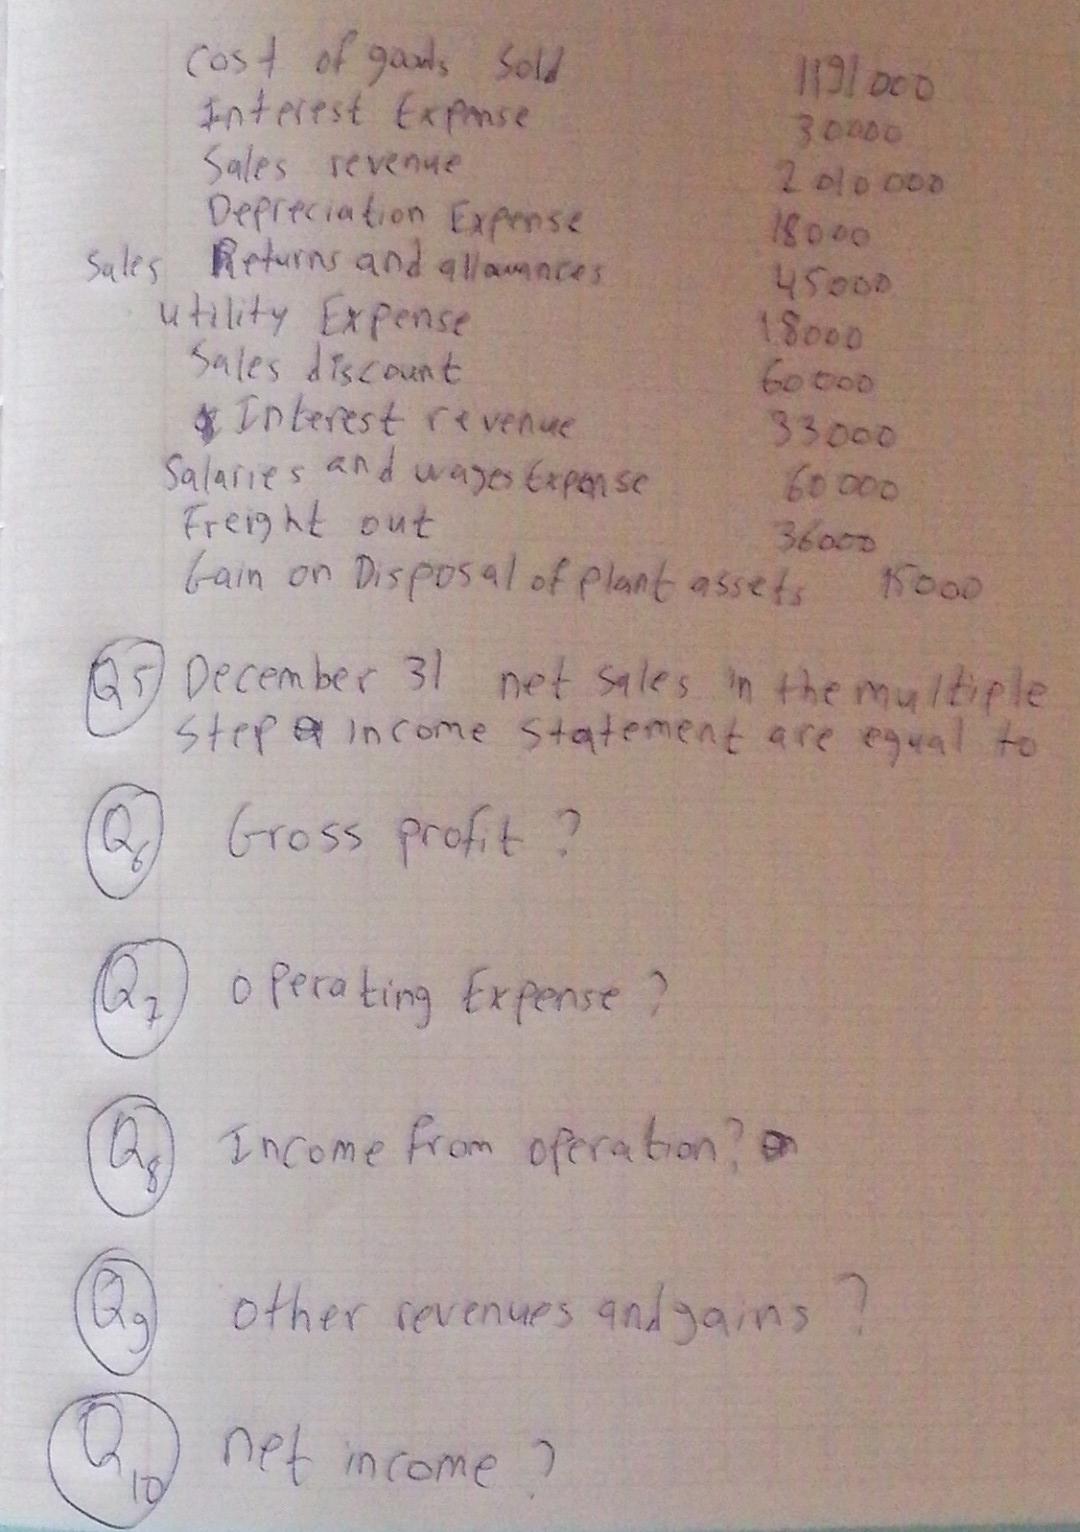 Cost of goods Sold 1191000
Interest Expense 30000
Sales revenue 2010000
Depreciation Expense 18000
Sales Returns and allowances 45000
utility Expense 18000
Sales discount 60000
Interest revenue 33000
Salaries and wages Expense 60000
Freight out 36000
Gain on Disposal of plant assets 15000
Q5 December 31 net sales in the multiple
step income statement are equal to
Q6 Gross profit ?
Q7 operating Expense ?
Q8 Income from operation?
Q9 other revenues and gains ?
Q10 net income ?